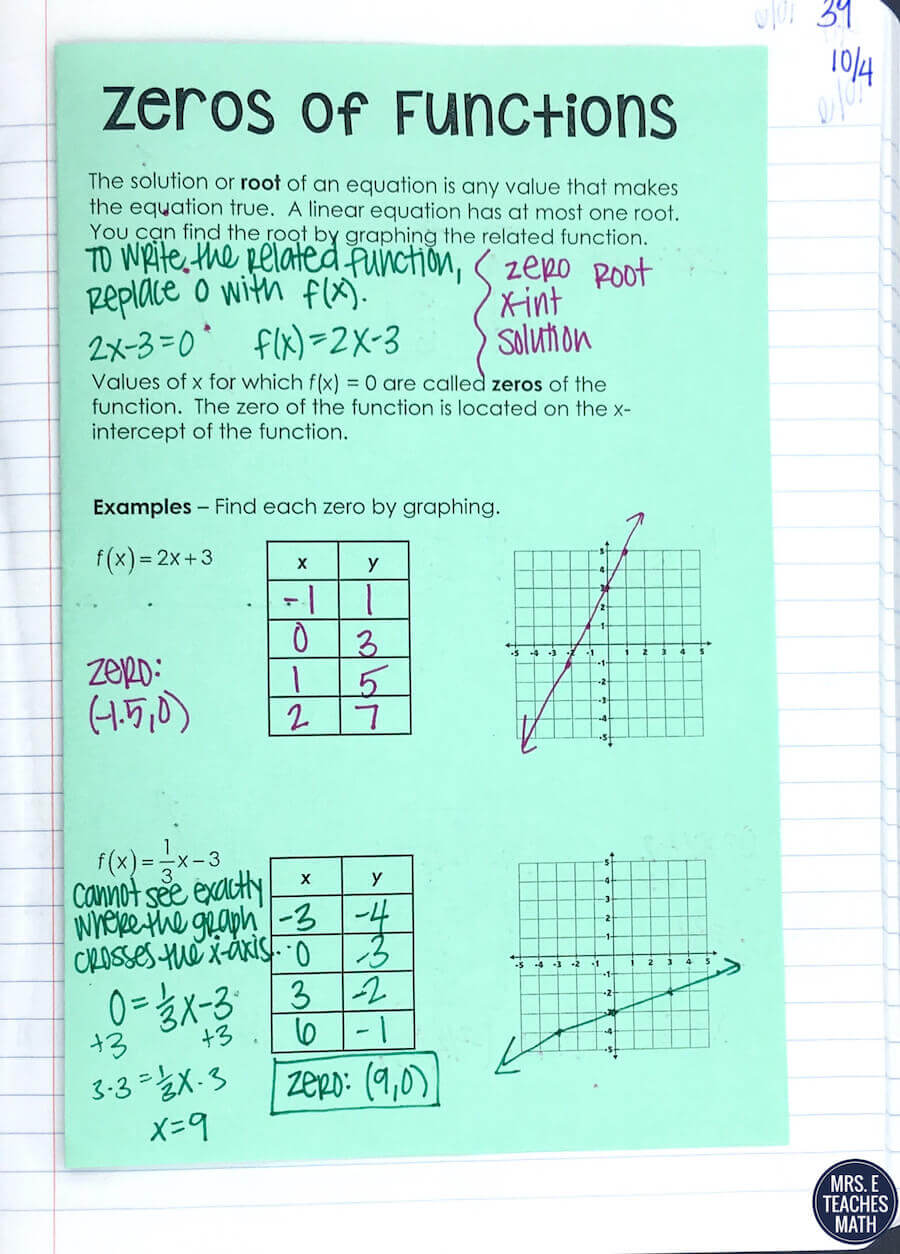 39
10/4
Zeros of Functions
The solution or root of an equation is any value that makes
the equation true. A linear equation has at most one root.
You can find the root by graphing the related function.
To write the related function,
replace 0 with f(x).
2x-3=0 f(x)=2x-3
{ zero root
x-int
solution
Values of x for which f(x) = 0 are called zeros of the
function. The zero of the function is located on the x-
intercept of the function.
Examples – Find each zero by graphing.
f(x) = 2x+3
x y
-1 1
0 3
1 5
2 7
zero:
(-1.5,0)
5
4
3
2
1
-5 -4 -3 -2 -1 1 2 3 4 5
-1
-2
-3
-4
-5
f(x) = 1/3 x - 3
cannot see exactly
where the graph
crosses the x-axis...
0=1/3x-3
+3 +3
3·3=1/3x·3
x=9
x y
-3 -4
0 -3
3 -2
6 -1
zero: (9,0)
5
4
3
2
1
-5 -4 -3 -2 -1 1 2 3 4 5
-1
-2
-4
-5
MRS. E
TEACHES
MATH